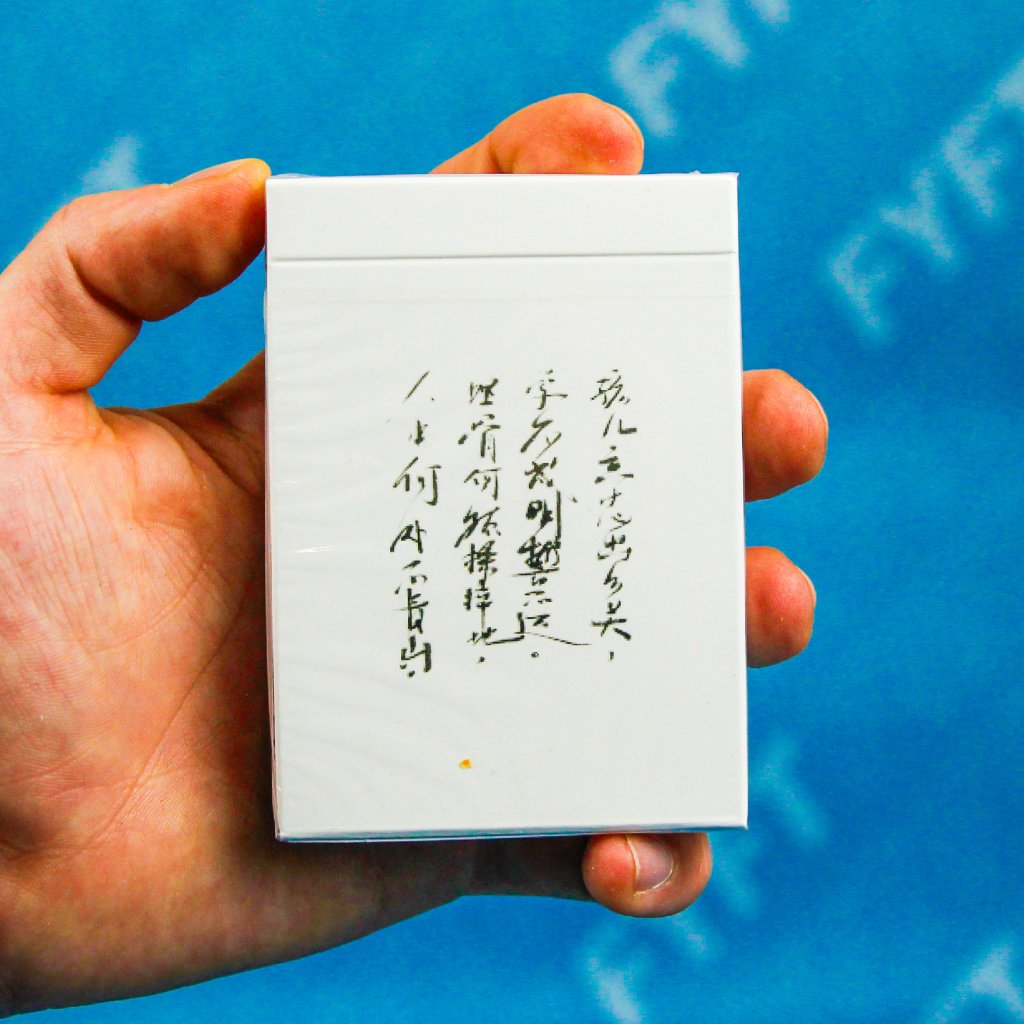 孩儿立志出乡关，
学不成名誓不还。
埋骨何须桑梓地，
人生何处不青山。
FYFT
FYFT